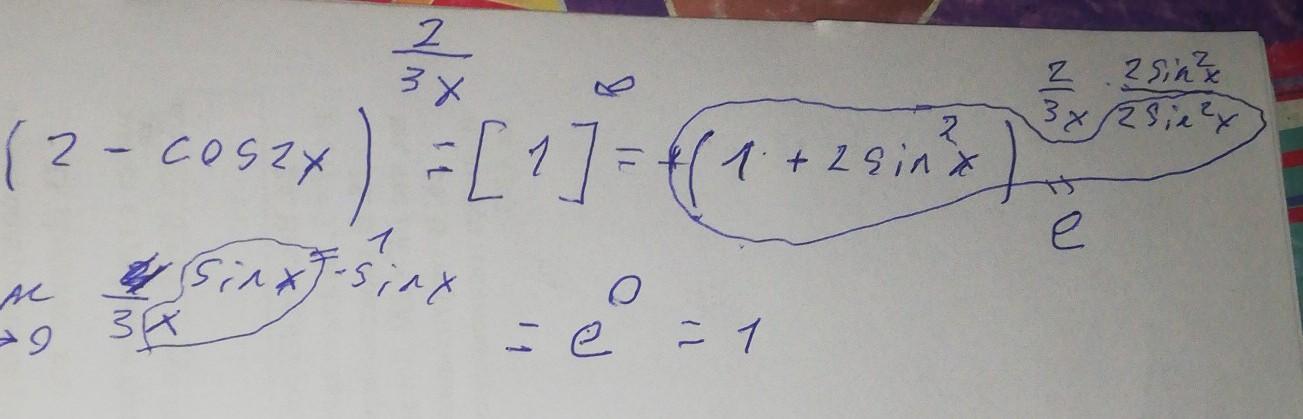 (2 - cos2x)^{\frac{2}{3x}} = [1]^{∞} = (1 + 2sin^2x)^{\frac{2}{3x} · \frac{2sin^2x}{2sin^2x}}
e
→0 \frac{4}{3x} sinx · sinx = 1
= e^0 = 1